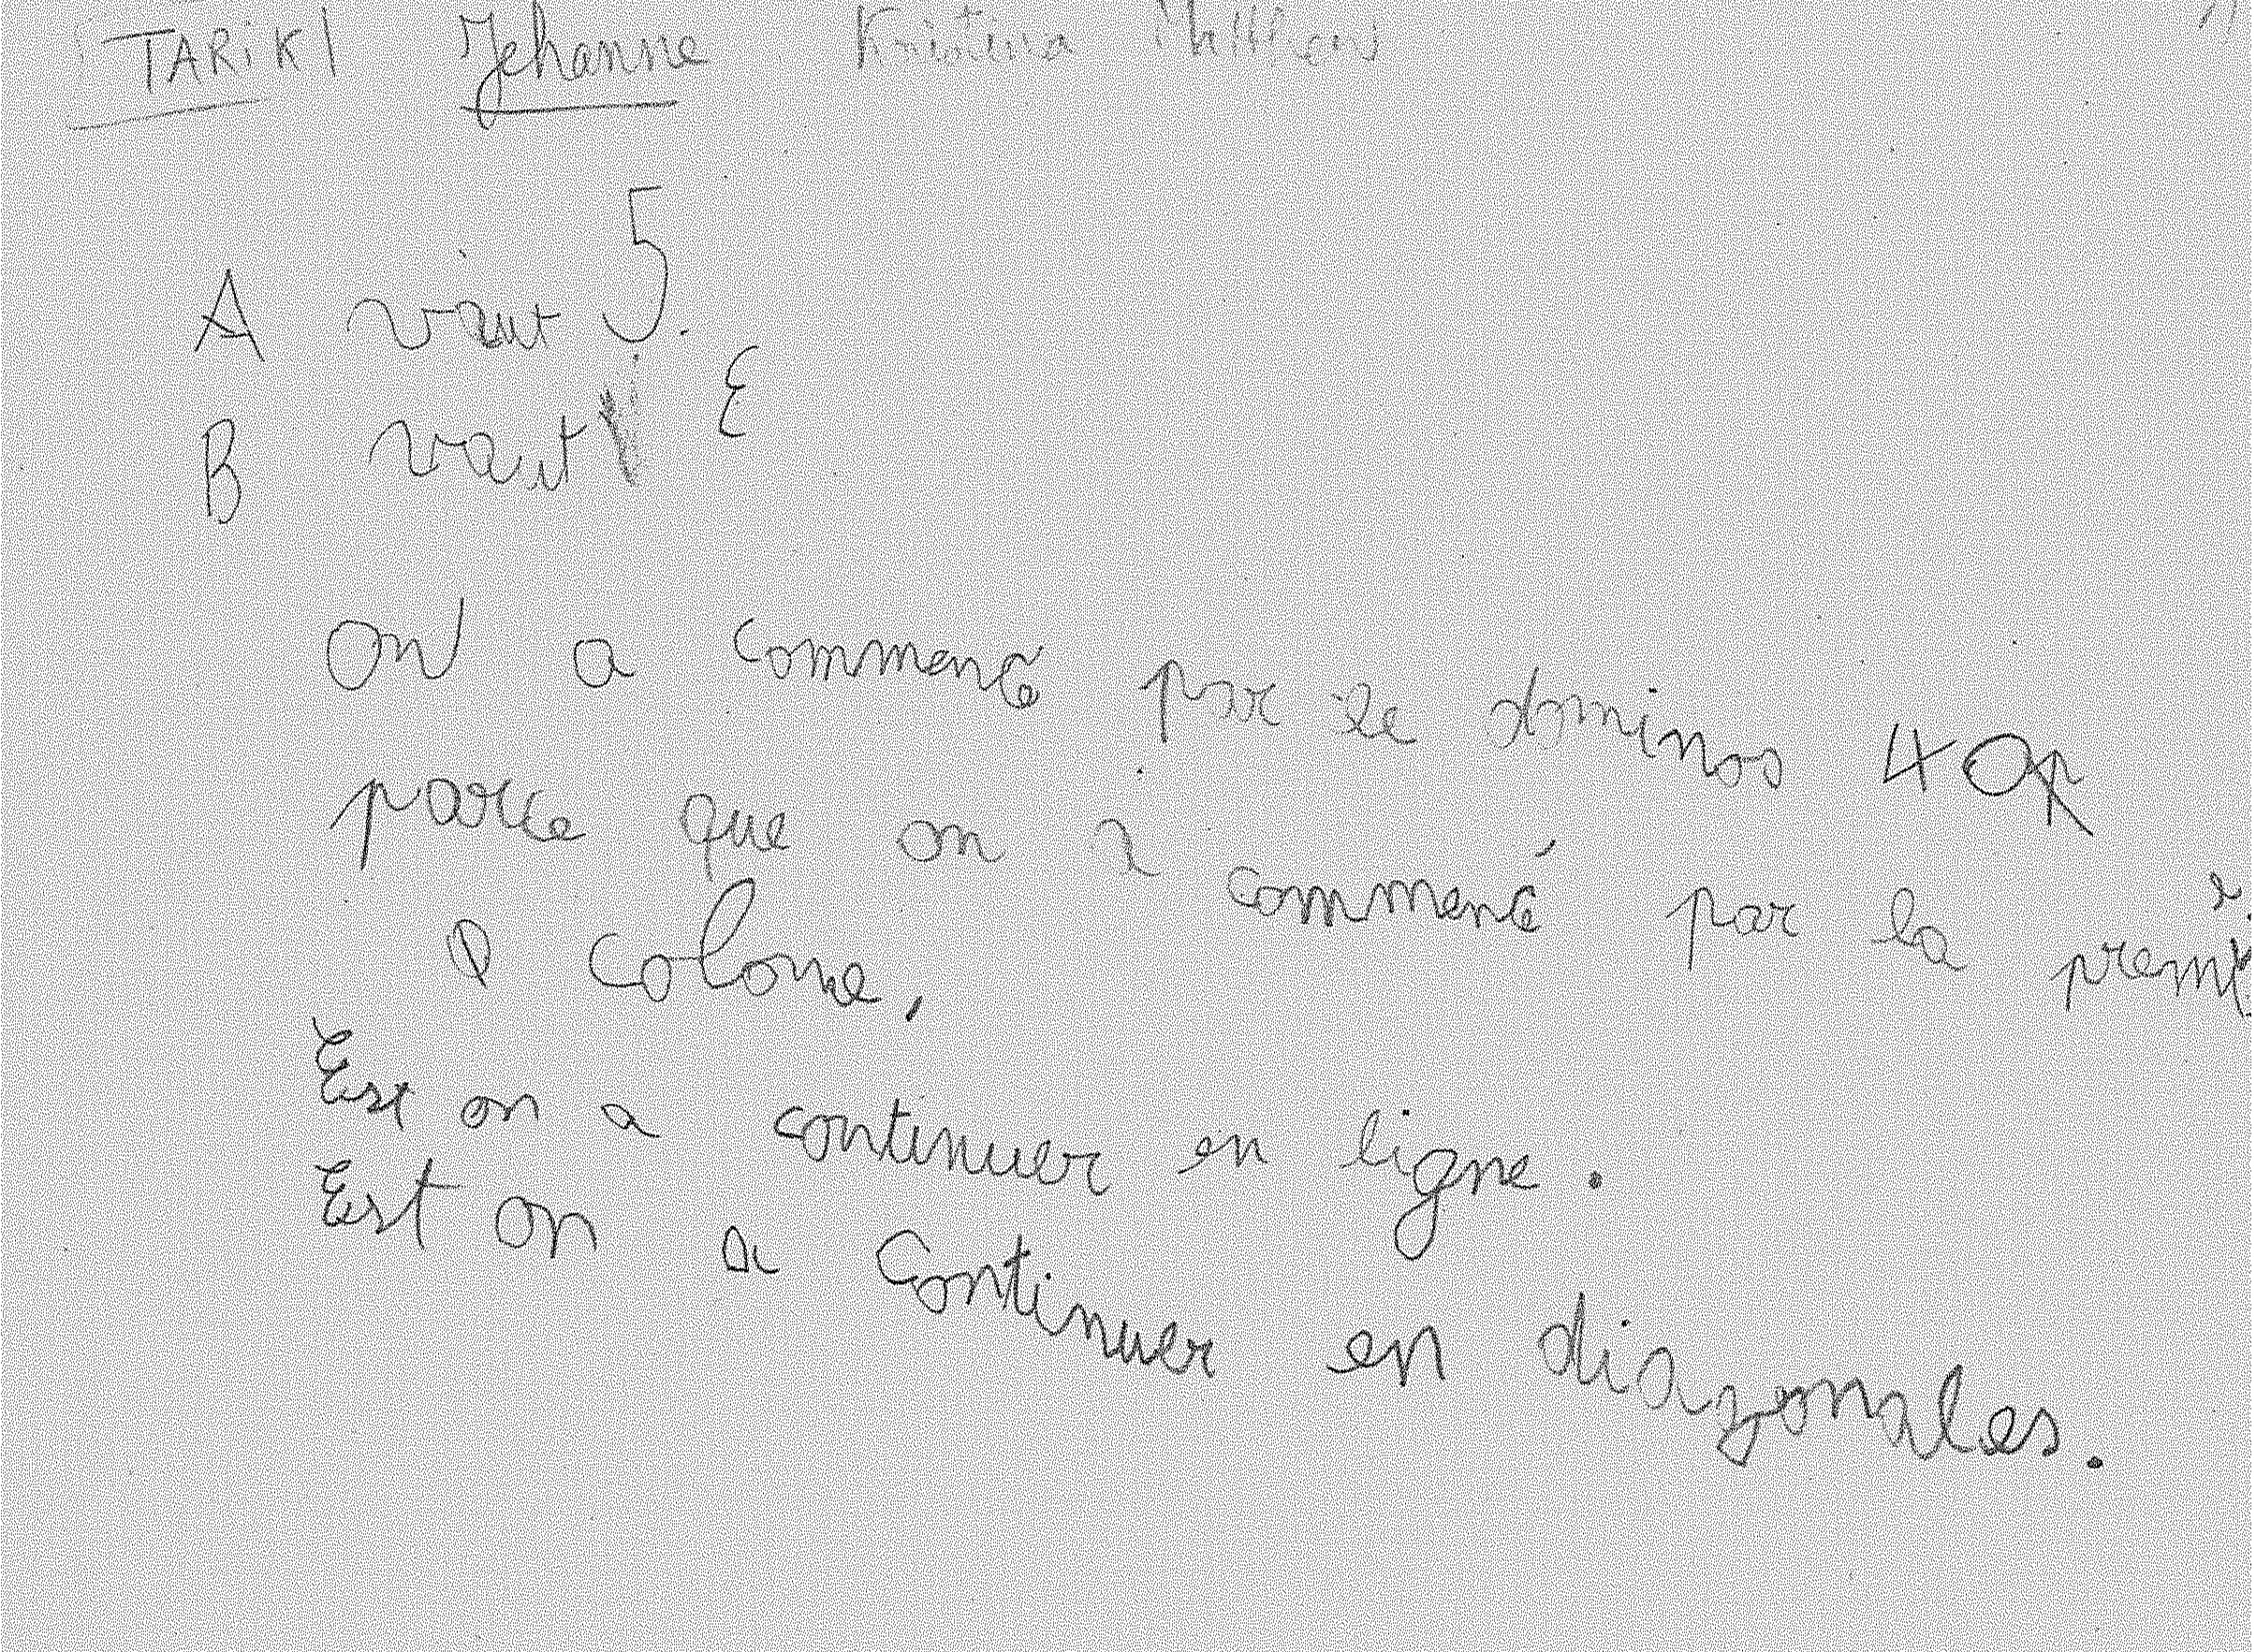 TARIK Jehanne Kristina
A vaut 5.
B vaut 3
On a commencé par le dominos 4
parce que on a commencé par la
colone.
Est on a continuer en ligne.
Est on a continuer en diagonales.